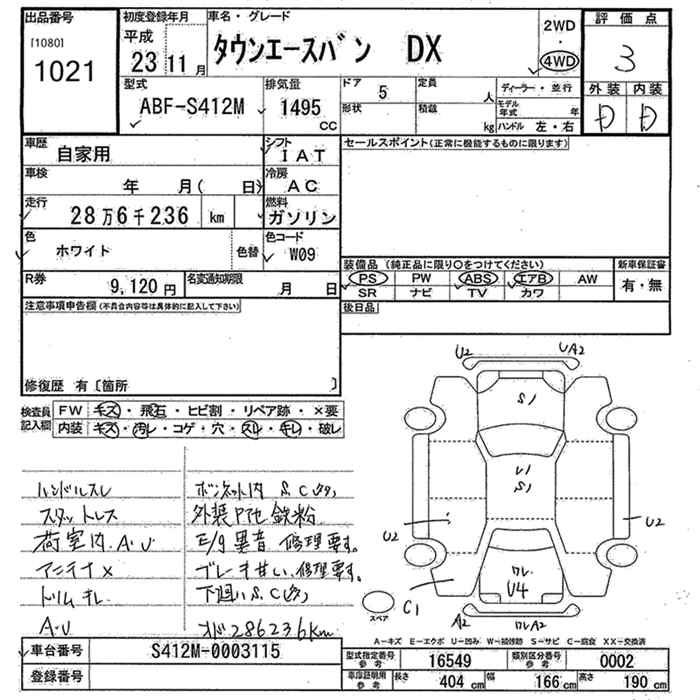 出品番号
[1080]
1021
初度登録年月
平成
23 11 月
車名・グレード
タウンエースバン DX
2WD
・
4WD
評価点
3
外装 内装
D D
型式
ABF-S412M
排気量
1495
CC
ドア 5
形状
定員 人
積載 kg
ディーラー・並行
モデル年式 年
ハンドル 左・右
車歴
自家用
シフト
IAT
車検
年 月( 日)
冷房
AC
走行
28万6千236 km
燃料
ガソリン
色
ホワイト
色替
色コード
W09
R券
9,120 円
名変通知期限
月 日
セールスポイント(正常に機能するものに限ります)
装備品 (純正品に限り○をつけてください)
新車保証書
PS PW ABS エアB AW
SR ナビ TV カワ
有・無
後日品
注意事項申告欄(不具合内容等は具体的に記入して下さい)
修復歴 有〔箇所 〕
検査員記入欄
FW キズ・飛石・ヒビ割・リペア跡・×要
内装 キズ・汚レ・コゲ・穴・スレ・キレ・破レ
ハンドルスレ
スタットレス
荷室内 A.U
アンテナ×
トリムキレ
A・U
ボンネット内 S.C(タタ)
外装P他 鉄粉
E/g異音 修理要す。
ブレーキ甘い、修理要す。
下廻りS.C(タ)
メーター286236km
U2
UA2
S1
U1
S1
U2
U2
ワレ
U4
C1
A2
ワレA2
スペア
A-キズ E-エクボ U-凹み W-補修跡 S-サビ C-腐食 XX-交換済
車台番号
S412M-0003115
登録番号
型式指定番号参考
16549
類別区分番号参考
0002
車庫証明用参考
長さ 404 cm
幅 166 cm
高さ 190 cm